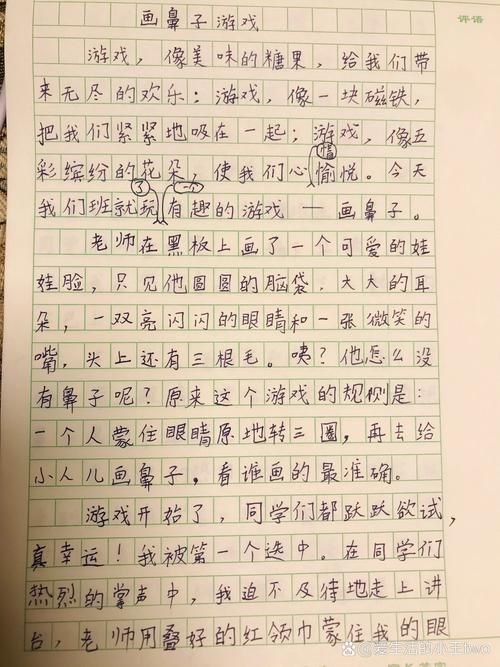 评语
画鼻子游戏
游戏，像美味的糖果，给我们带
来无尽的欢乐；游戏，像一块磁铁，
把我们紧紧地吸在一起；游戏，像五
情
彩缤纷的花朵，使我们心愉悦。今天
了 一个
我们班就玩有趣的游戏——画鼻子。
老师在黑板上画了一个可爱的娃
娃脸，只见他圆圆的脑袋，大大的耳
朵，一双亮闪闪的眼睛和一张微笑的
嘴，头上还有三根毛。咦？他怎么没
有鼻子呢？原来这个游戏的规则是：
一个人蒙住眼睛原地转三圈，再去给
小人儿画鼻子，看谁画的最准确。
游戏开始了，同学们都跃跃欲试，
真幸运！我被第一个选中。在同学们
热烈的掌声中，我迫不及待地走上讲
台，老师用叠好的红领巾蒙住我的眼
@爱生活的小王two